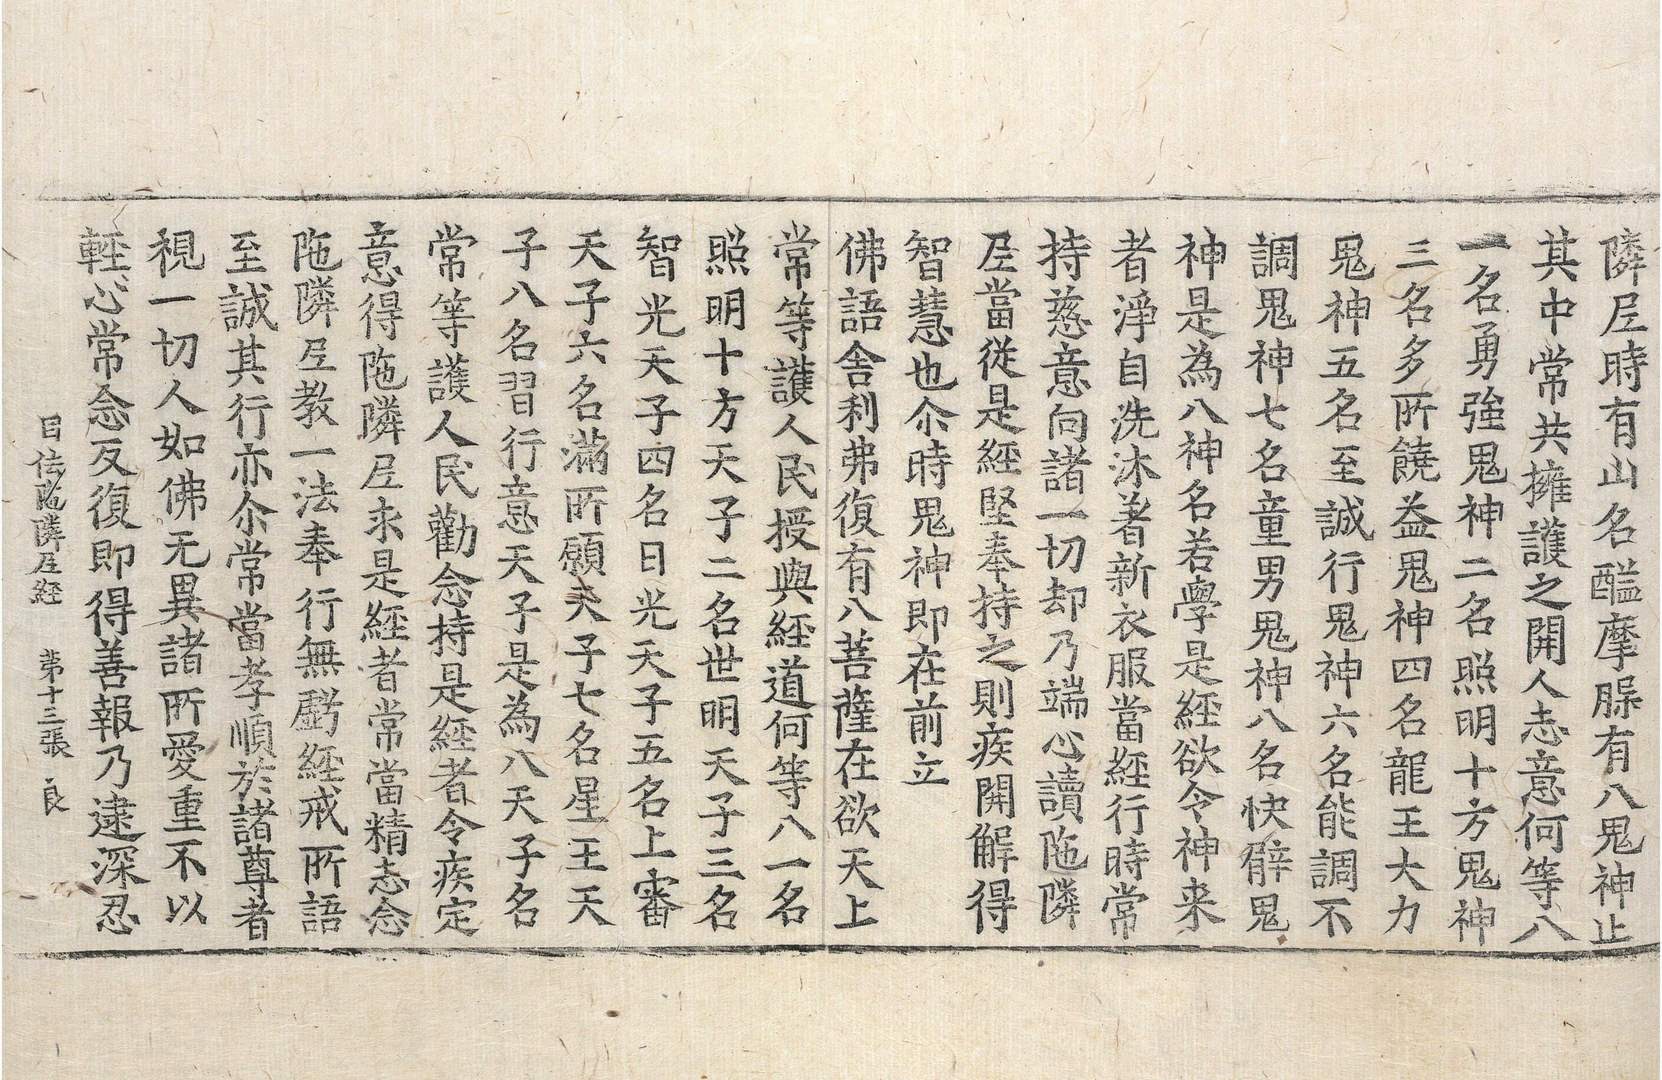 隣𡰱時有山名醯摩脲有八鬼神止
其中常共擁護之開人志意何等八
一名勇強鬼神二名照明十方鬼神
三名多所饒益鬼神四名龍王大力
鬼神五名至誠行鬼神六名能調不
調鬼神七名童男鬼神八名快臂鬼
神是為八神名若學是經欲令神来
者淨自洗沐著新衣服當經行時常
持慈意向諸一切却乃端心讀陁隣
𡰱當從是經堅奉持之則疾開解得
智慧也尒時鬼神即在前立
佛語舍利弗復有八菩薩在欲天上
常等護人民授與經道何等八一名
照明十方天子二名世明天子三名
智光天子四名日光天子五名上審
天子六名滿所願天子七名星王天
子八名習行意天子是為八天子名
常等護人民勸念持是經者令疾定
意得陁隣𡰱求是經者常當精志念
陁隣𡰱教一法奉行無虧經戒所語
至誠其行亦尒常當孝順於諸尊者
視一切人如佛无異諸所愛重不以
輕心常念反復即得善報乃逮深忍
陁隣𡰱經 第十三張 良